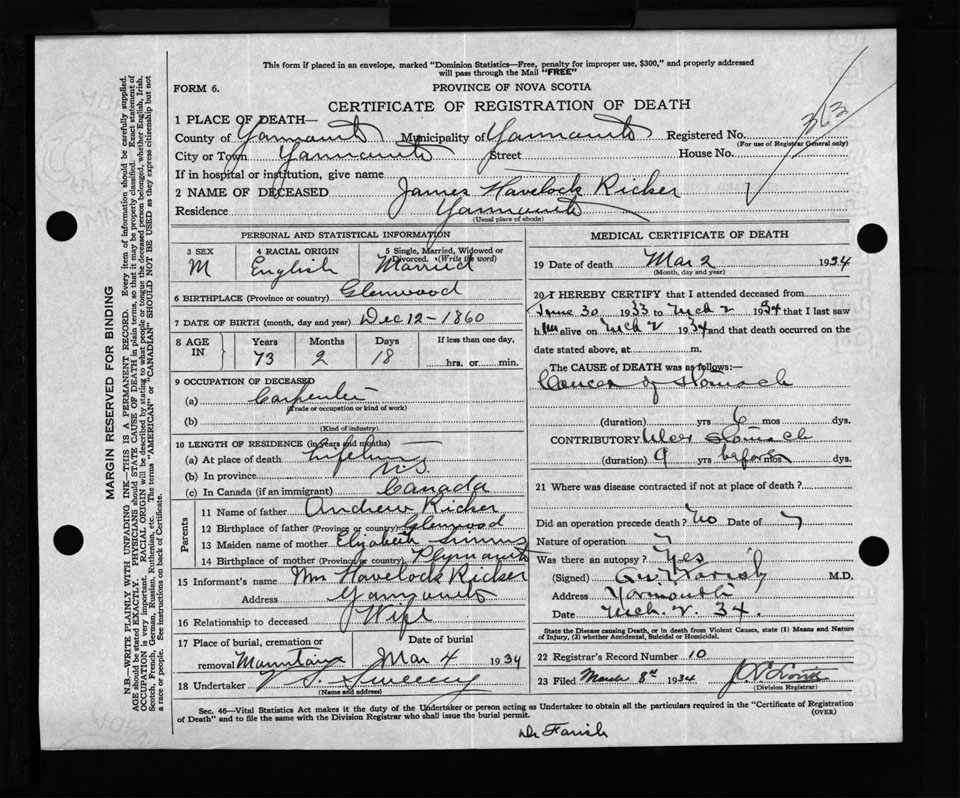 This form if placed in an envelope, marked "Dominion Statistics—Free, penalty for improper use, $300," and properly addressed
will pass through the Mail "FREE"
FORM 6.
PROVINCE OF NOVA SCOTIA
CERTIFICATE OF REGISTRATION OF DEATH
363
1 PLACE OF DEATH—
County of Yarmouth Municipality of Yarmouth Registered No.
(For use of Registrar General only)
City or Town Yarmouth Street House No.
If in hospital or institution, give name
2 NAME OF DECEASED James Havelock Ricker
Residence Yarmouth
(Usual place of abode)
PERSONAL AND STATISTICAL INFORMATION
3 SEX 4 RACIAL ORIGIN 5 Single, Married, Widowed or
Divorced. (Write the word)
M English Married
6 BIRTHPLACE (Province or country) Glenwood
7 DATE OF BIRTH (month, day and year) Dec 12-1860
8 AGE IN Years Months Days If less than one day,
73 2 18 hrs. or min.
9 OCCUPATION OF DECEASED
(a) Carpenter
(Trade or occupation or kind of work)
(b)
(Kind of industry)
10 LENGTH OF RESIDENCE (in years and months)
(a) At place of death Lifetime
(b) In province N.S.
(c) In Canada (if an immigrant) Canada
Parents
11 Name of father Andrew Ricker
12 Birthplace of father (Province or country) Glenwood
13 Maiden name of mother Elizabeth Simms
14 Birthplace of mother (Province or country) Plymouth
15 Informant's name Mrs Havelock Ricker
Address Yarmouth
16 Relationship to deceased Wife
17 Place of burial, cremation or Date of burial
removal Mountain Mar 4 1934
18 Undertaker V S. Sweeny
(Name and address)
MEDICAL CERTIFICATE OF DEATH
19 Date of death Mar 2 1934
(Month, day and year)
20 I HEREBY CERTIFY that I attended deceased from
June 30 1933 to Mch 2 1934 that I last saw
him alive on Mch 2 1934 and that death occurred on
date stated above, at m.
The CAUSE of DEATH was as follows:—
Cancer of Stomach
(duration) yrs 6 mos dys.
CONTRIBUTORY Ulcer Stomach
(duration) 9 yrs before mos dys.
21 Where was disease contracted if not at place of death?
Did an operation precede death? No Date of
Nature of operation
Was there an autopsy? Yes
(Signed) Geo. Farish M.D.
Address Yarmouth
Date Mch. 2. 34.
State the Disease causing Death, or in death from Violent Causes, state (1) Means and Nature
of Injury, (2) whether Accidental, Suicidal or Homicidal.
22 Registrar's Record Number 10
23 Filed March 8th 1934
(Division Registrar)
Sec. 46—Vital Statistics Act makes it the duty of the Undertaker or person acting as Undertaker to obtain all the particulars required in the "Certificate of Registration
of Death" and to file the same with the Division Registrar who shall issue the burial permit.
(OVER)
Dr Farish
MARGIN RESERVED FOR BINDING
N.B.—WRITE PLAINLY WITH UNFADING INK—THIS IS A PERMANENT RECORD. Every item of information should be carefully supplied.
AGE should be stated EXACTLY. PHYSICIANS should STATE CAUSE OF DEATH in plain terms, so that it may be properly classified. Exact statement of
OCCUPATION is very important. RACIAL ORIGIN will be described by stating to what people or tongue the deceased person belonged, whether English, Irish,
Scotch, French, German, Russian, Ruthenian, etc. The terms "AMERICAN" or "CANADIAN" SHOULD NOT BE USED as they express citizenship but not
a race or people. See instructions on back of Certificate.